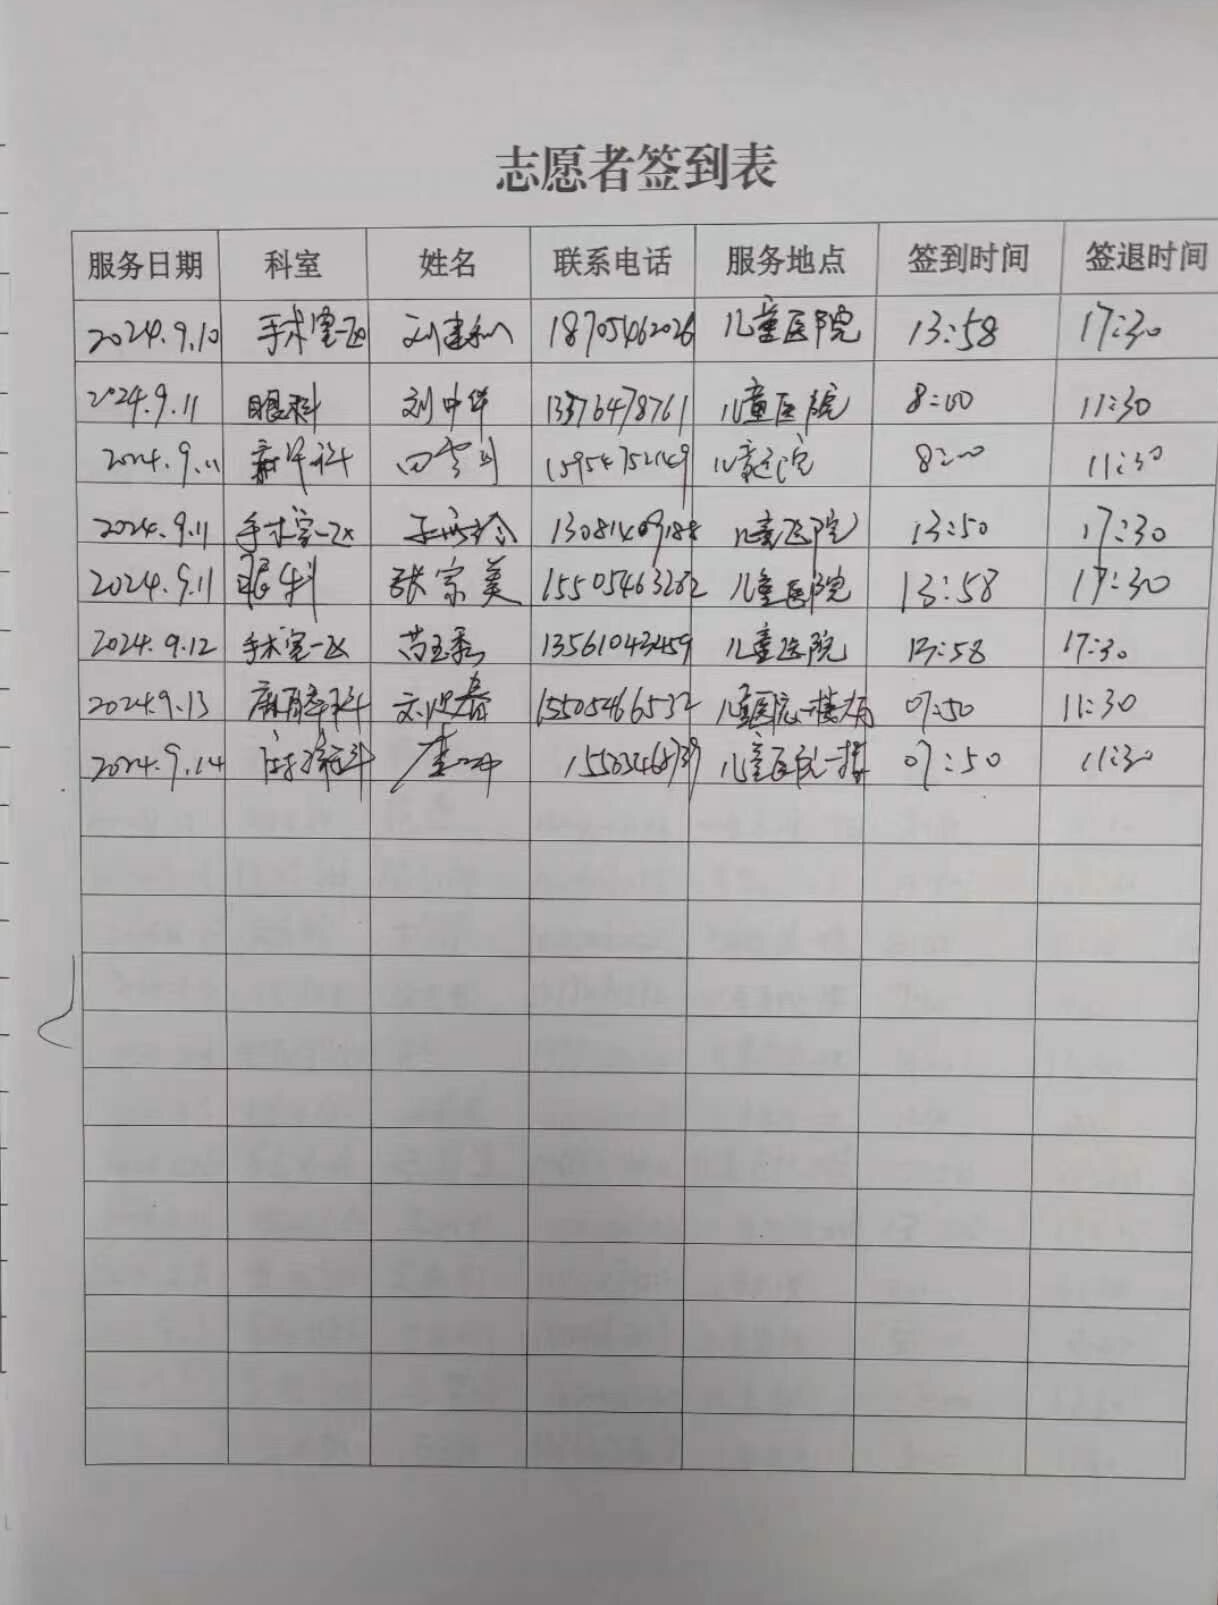 志愿者签到表
服务日期 科室 姓名 联系电话 服务地点 签到时间 签退时间
2024.9.10 手术室一区 刘建和 18705462026 儿童医院 13:58 17:30
2024.9.11 眼科 刘中华 13376478761 儿童医院 8:00 11:30
2024.9.11 15954752149 8:00 11:30
2024.9.11 手术室一区 13081409188 儿童医院 13:50 17:30
2024.9.11 眼科 张宗美 15505463262 儿童医院 13:58 17:30
2024.9.12 手术室一区 13561043459 儿童医院 13:58 17:30
2024.9.13 麻醉科 15505466532 儿童医院一楼大厅 07:50 11:30
2024.9.14 儿童医院一楼 07:50 11:30